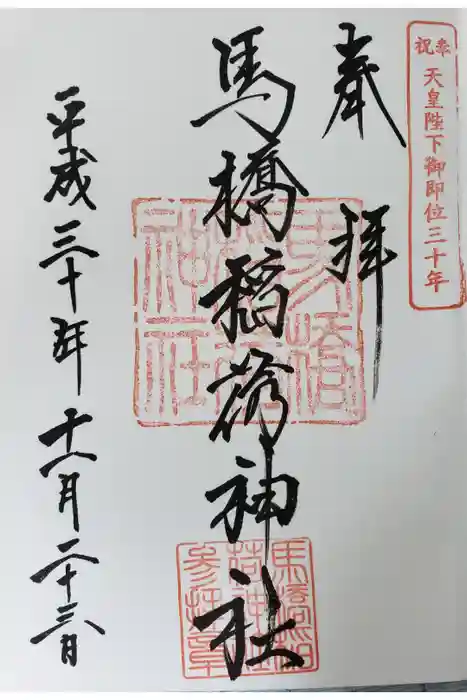 奉祝
天皇陛下御即位三十年
奉拝
馬橋稲荷神社
馬橋
稲荷
神社
馬橋稲
荷神社
参拝章
平成三十年十一月二十三日